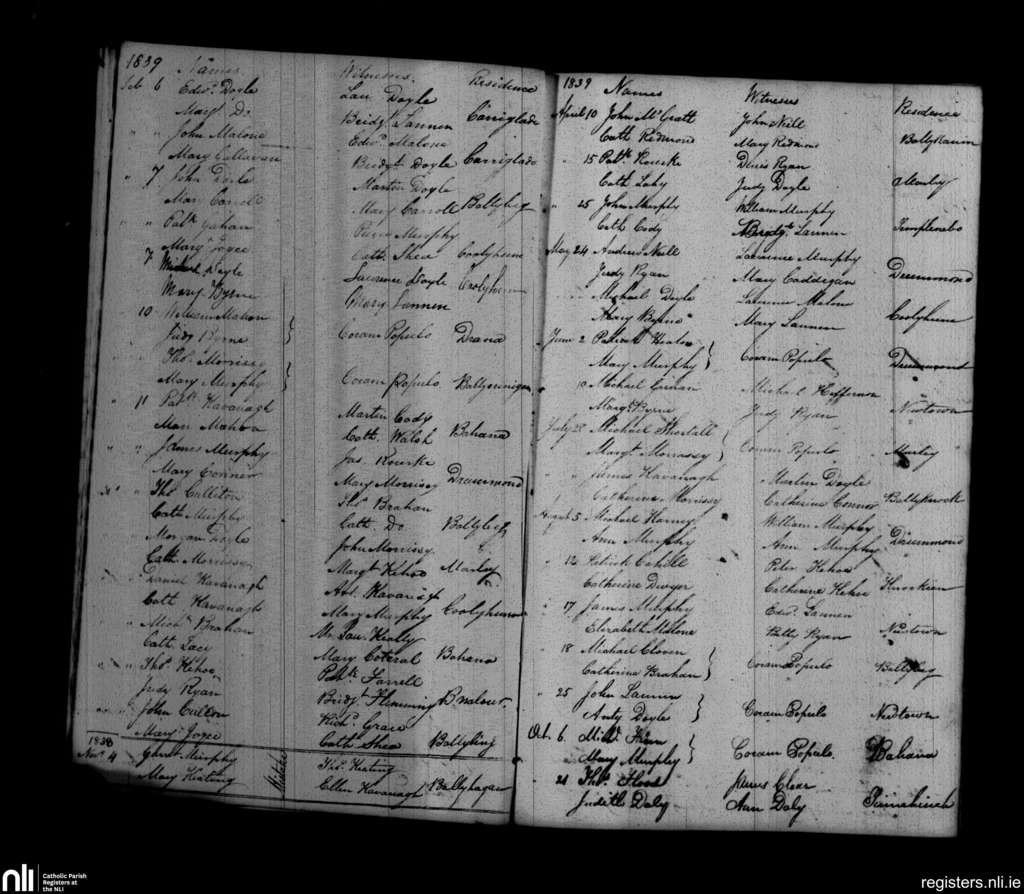 1839 Names Witnesses Residence
Feb 6 Edwd. Doyle Lau Doyle
Margt Do Bridgt Lannen Carriglade
" " John Malone Edwd Malone
Mary Callavan Bridgt Doyle Carriglade
" 7 John Doyle Martin Doyle
Mary Carroll Mary Carroll Ballybeg
" " Patk Gahan Murphy
Margt Joyce Cath. Shea Coolyhune
7 Michael Doyle Laurence Doyle Coolyhune
Mary Byrne Mary Lannen
10 William Mahon
Judy Byrne } Coram Populo Drana
" " Thos. Morrissy
Mary Murphy } Coram Populo
" 11 Patk Kavanagh Martin Cody
Mary Cath. Walsh Bahana
" " James Murphy Jas. Rourke
Mary Connor Mary Morrissy Drummond
Thos Culliton Thos Brahan
Cath Murphy Cath. Do Ballybeg
Morgan Doyle John Morrissy
Cath. Morrissy Margt Kehoe Marley
Daniel Kavanagh Kavanagh
Cath Kavanagh Mary Murphy Coolyhune
" Michl. Brahan Mr Lau Keally
Cath. Lacy Mary Coteral Bahana
" " Thos. Kehoe Patk Farrell
Judy Ryan Bridgt Flemming
" " John Cullon Richd. Grace
Mary Joyce Cath Shea Ballyling
1838
Novr 4 Murphy Thos. Keating
Mary Keating Ellen Kavanagh Ballyhagan
1839 Names Witnesses Residence
April 10 John McGratt John Neill
Cath Redmond Mary Redmond
" 15 Patk Rourke Denis Ryan
Cath Lahy Judy Doyle Marley
" 25 John Murphy William Murphy
Cath Cody Bridgt. Lannen Templenabo
May 24 Andrew Neill Laurence Murphy
Judy Ryan Mary Caddegan Drummond
Michael Doyle Laurence
Mary Byrne Mary Lannen Coolyhune
June 2 Patrick
Mary Murphy } Coram Populo Drummond
10 Michael Michael Heffernon
Margt. Byrne Judy Ryan Newtown
July 28 Michael Shortall
Margt Morrassy } Coram Populo Marley
" James Kavanagh Martin Doyle
Catherine Morrissy Catherine Connor Ballyknock
August 5 Michael William Murphy
Ann Murphy Ann Murphy Drummond
" 12 Patrick Cahill Peter Kehoe
Catherine Dwyer Catherine Kehoe
" 17 James Murphy Edwd. Lannen
Elizabeth Malone Patty Ryan Newtown
" 18 Michael Cloven
Catherine Brahan } Coram Populo Ballybeg
" 25 John Lannen
Anty Doyle } Coram Populo Newtown
Oct. 6. Michl
Mary Murphy } Coram Populo. Bahana
" 21 Thos. Flood James Clear
Judith Daly Ann Daly
nli
Catholic Parish
Registers at
the NLI
registers.nli.ie